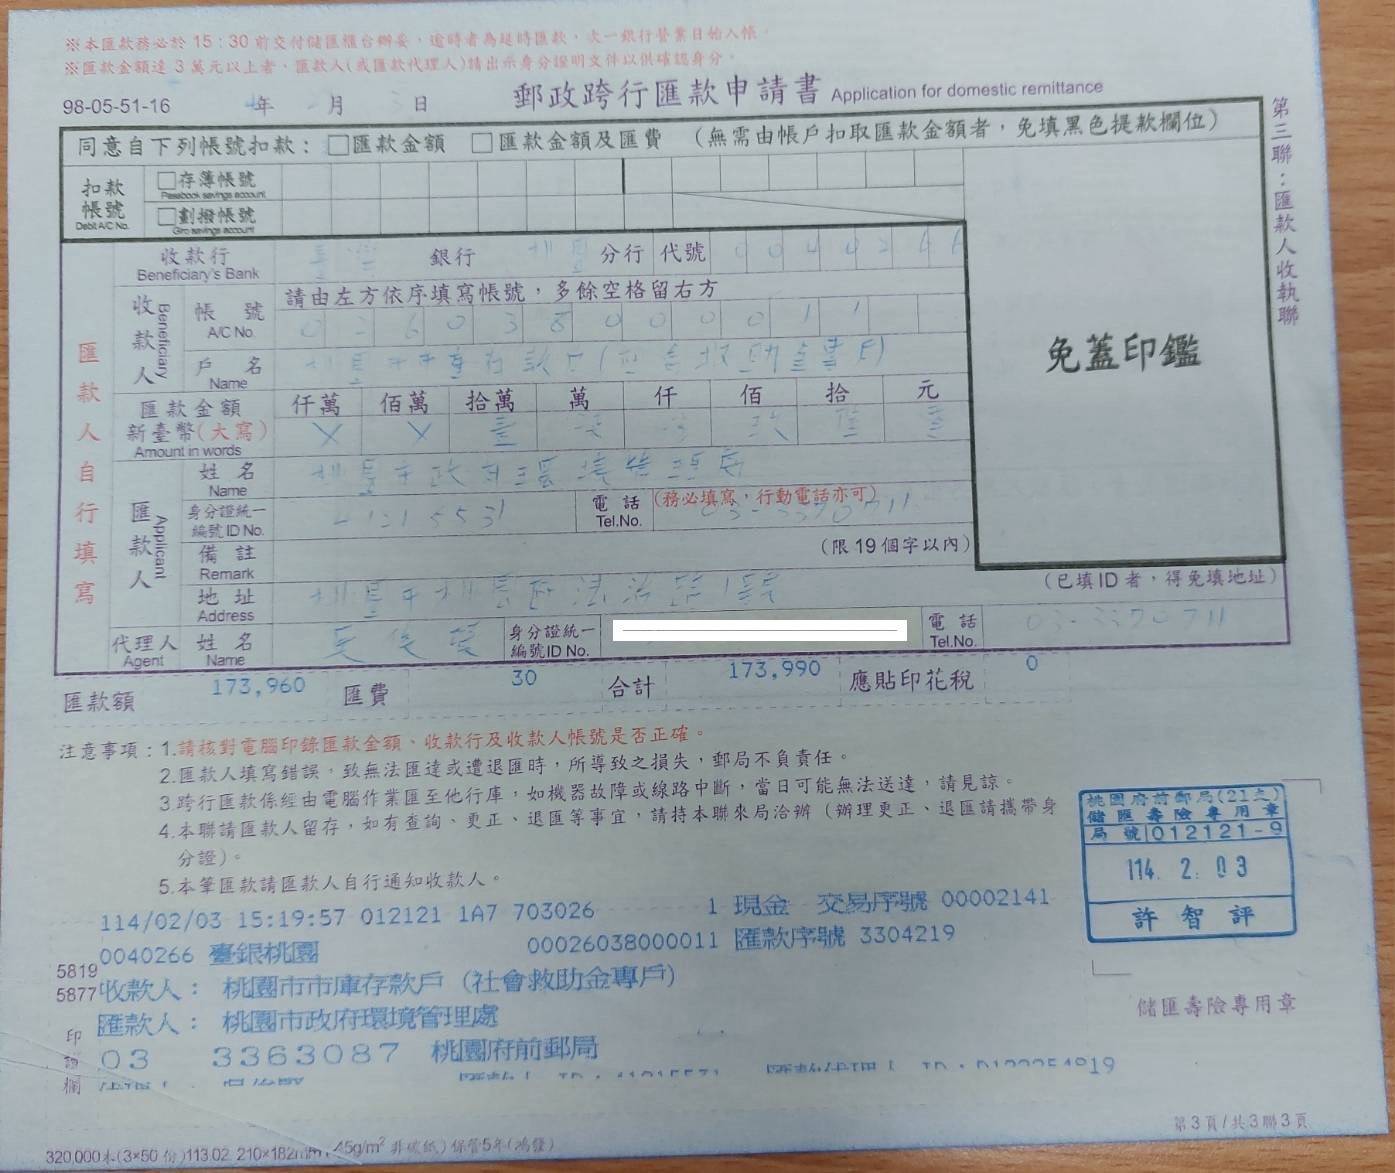 ※本匯款務必於 15：30 前交付儲匯櫃台辦妥，逾時者為逾時匯款，次一銀行營業日始入帳。
※匯款金額達 3 萬元以上者，匯款人(或匯款代理人)請出示身分證明文件以供確認身分。
98-05-51-16 年 月 日 郵政跨行匯款申請書 Application for domestic remittance
第三聯：匯款人收執聯
同意自下列帳號扣款：□匯款金額 □匯款金額及匯費 （無需由帳戶扣取匯款金額者，免填黑色提款欄位）
扣款帳號 Debit A/C No.
□存簿帳號 Passbook savings account
□劃撥帳號 Giro savings account
匯款人自行填寫
收款行 Beneficiary's Bank 臺灣 銀行 桃園 分行 代號 0 0 4 4 2 6 6
收款人 Beneficiary
請由左方依序填寫帳號，多餘空格留右方
帳號 A/C No. 0 2 6 0 3 8 0 0 0 0 1 1
戶名 Name 桃園市市庫存款戶(社會救助金專戶)
匯款金額 新臺幣(大寫) Amount in words
仟萬 佰萬 拾萬 萬 仟 佰 拾 元
X X 壹 柒 參 玖 陸 零
免蓋印鑑
匯款人 Applicant
姓名 Name 桃園市政府環境管理處
身分證統一編號 ID No. 41215531 電話 Tel.No. (務必填寫，行動電話亦可) 03-3390711
備註 Remark (限19個字以內)
地址 Address 桃園市桃園區法治路1號 (已填ID者，得免填地址)
代理人 Agent 姓名 Name 身分證統一編號ID No. 電話 Tel.No. 03-3390711
匯款額 173,960 匯費 30 合計 173,990 應貼印花稅 0
注意事項：1.請核對電腦印錄匯款金額、收款行及收款人帳號是否正確。
2.匯款人填寫錯誤，致無法匯達或遭退匯時，所導致之損失，郵局不負責任。
3 跨行匯款係經由電腦作業匯至他行庫，如機器故障或線路中斷，當日可能無法送達，請見諒。
4.本聯請匯款人留存，如有查詢、更正、退匯等事宜，請持本聯來局洽辦（辦理更正、退匯請攜帶身
分證）。
5.本筆匯款請匯款人自行通知收款人。
桃園府前郵局(21支)
儲匯壽險專用章
局號 012121-9
114. 2. 03
許智評
114/02/03 15:19:57 012121 1A7 703026 1 現金 交易序號 00002141
0040266 臺銀桃園 00026038000011 匯款序號 3304219
5819
5877
收款人： 桃園市市庫存款戶（社會救助金專戶）
匯款人： 桃園市政府環境管理處
03 3363087 桃園府前郵局
印證欄
儲匯壽險專用章
第3頁/共3聯3頁
320,000本(3×50份)113.02. 210×182mm，45g/m² 非碳紙) 保管5年(鴻發)